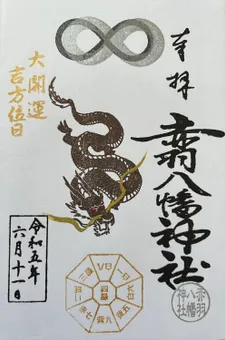 奉拝
赤羽八幡神社
大開運
吉方位日
令和五年
六月十一日
赤羽
八幡
神社